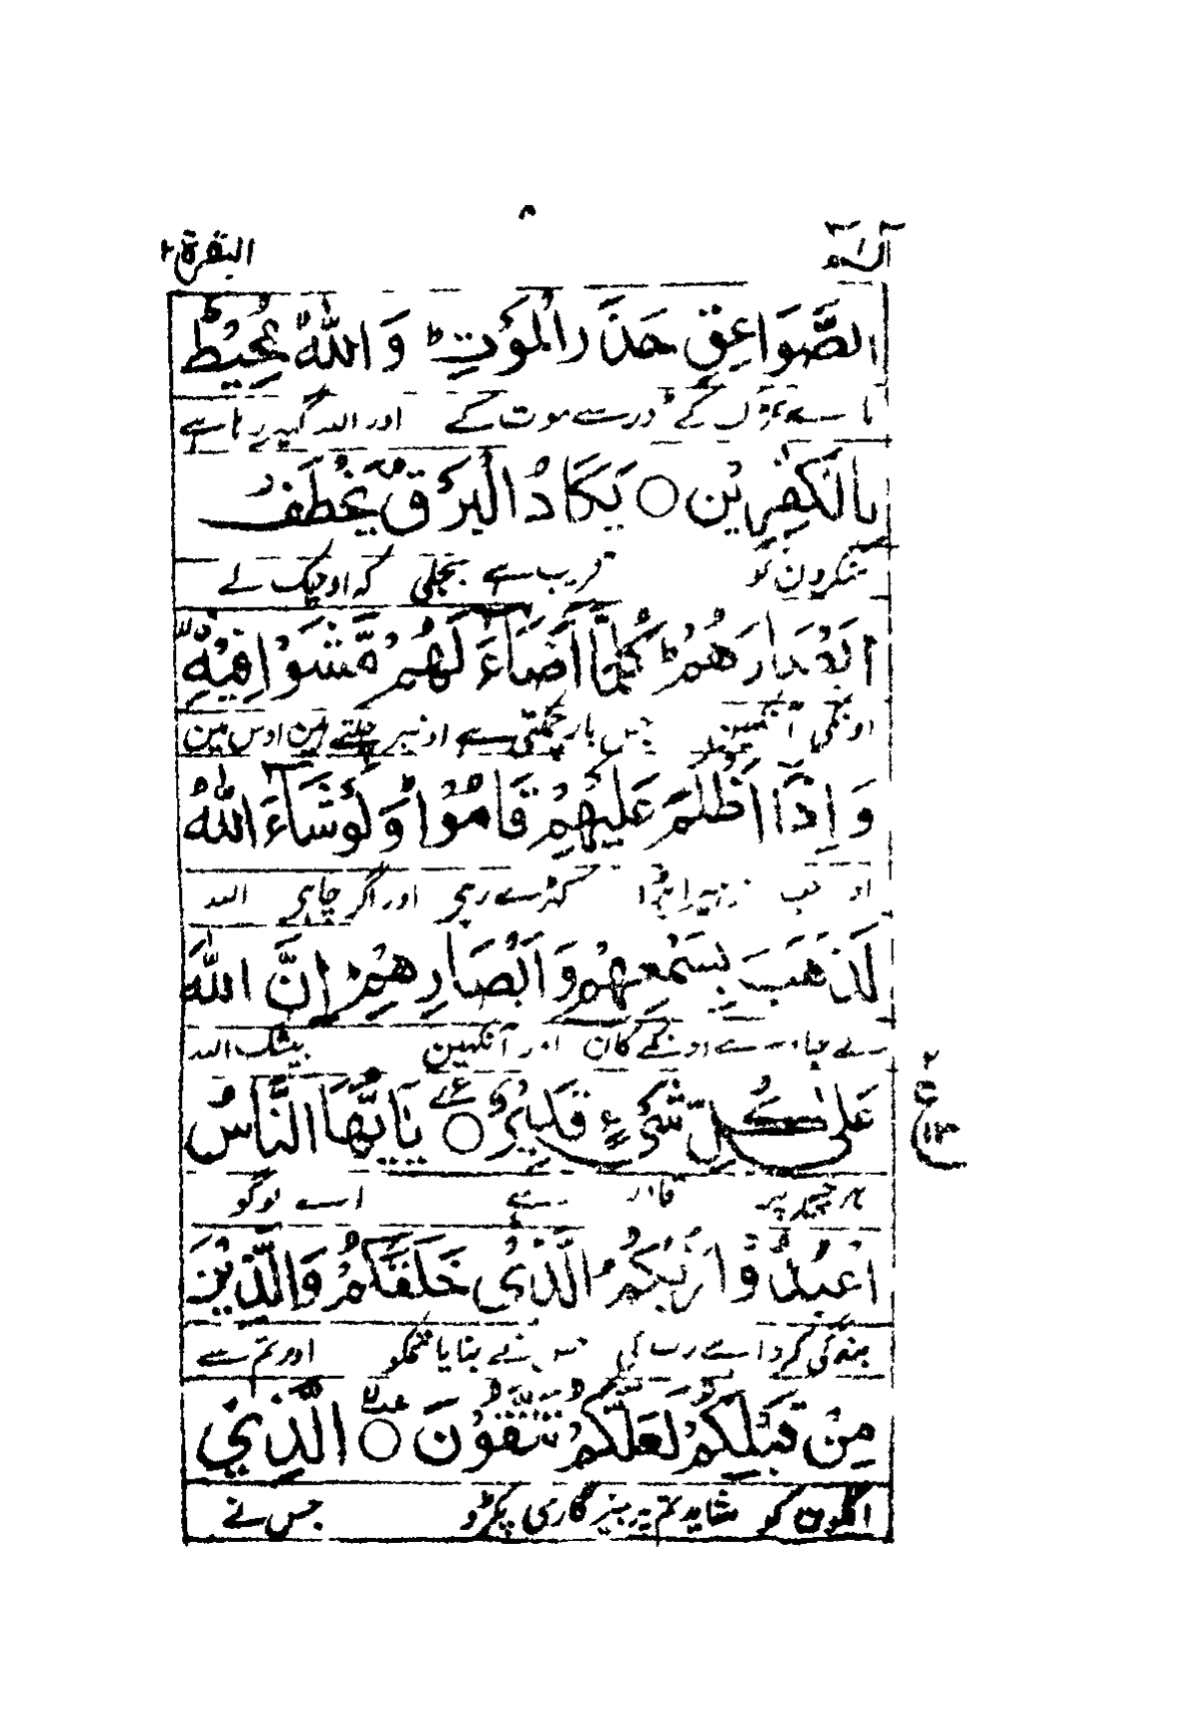 ۸
الٓمٓ ۱ البقرة ۲
الصَّوَاعِقِ حَذَرَ الْمَوْتِ ؕ وَاللّٰهُ مُحِیْطٌۢ
کے ڈر سے موت کے اور اللہ گہیر رہا ہے
بِالْكٰفِرِیْنَ ○ یَكَادُ الْبَرْقُ یَخْطَفُ
منکرون کو قریب ہے بجلی کہ اوچک لے
اَبْصَارَهُمْ ؕ كُلَّمَاۤ اَضَآءَ لَهُمْ مَّشَوْا فِیْهِ ۙ
اونکی آنکہین جس بار چمکتی ہے اونپر چلتے ہین اوس مین
وَاِذَاۤ اَظْلَمَ عَلَیْهِمْ قَامُوْا ؕ وَلَوْ شَآءَ اللّٰهُ
اور جب اندہیرا پڑا کہڑے رہے اور اگر چاہے اللہ
لَذَهَبَ بِسَمْعِهِمْ وَاَبْصَارِهِمْ ؕ اِنَّ اللّٰهَ
لے جاوے اونکے کان اور آنکہین بیشک اللہ
عَلٰى كُلِّ شَیْءٍ قَدِیْرٌ ○ یٰۤاَیُّهَا النَّاسُ
ع ۲ ۱۳
ہر چیز پر قادر ہے اے لوگو
اعْبُدُوْا رَبَّكُمُ الَّذِیْ خَلَقَكُمْ وَالَّذِیْنَ
بندگی کرو اپنے رب کی جس نے بنایا تمکو اور تم سے
مِنْ قَبْلِكُمْ لَعَلَّكُمْ تَتَّقُوْنَ ○ الَّذِیْ
اگلون کو شاید تم پرہیزگاری پکڑو جس نے